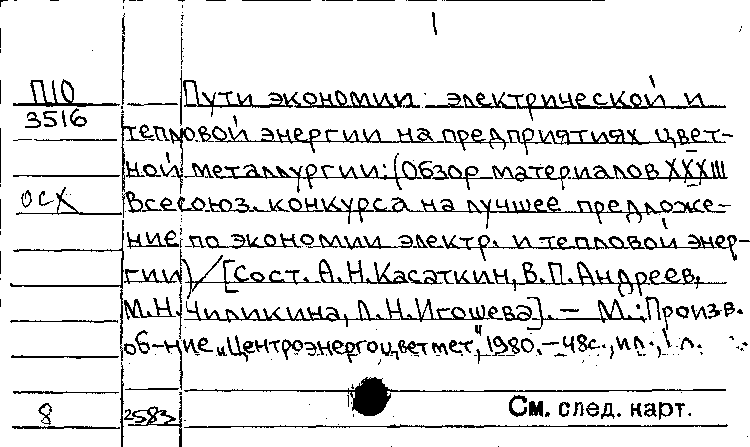 П10
3516
осх
Пути экономии электрической и
тепловой энергии на предприятиях цвет-
ной металлургии: (Обзор материалов XXXIII
Всесоюз. конкурса на лучшее предложе-
ние по экономии электр. и тепловой энер-
гии) / [Сост. А.Н.Касаткин, В.П.Андреев,
М.Н.Чиликина, Л.Н.Игошева]. — М.: Произв.
об-ние „Центроэнергоцветмет", 1980. — 48с., ил., 1 л.
8
2583
См. след. карт.